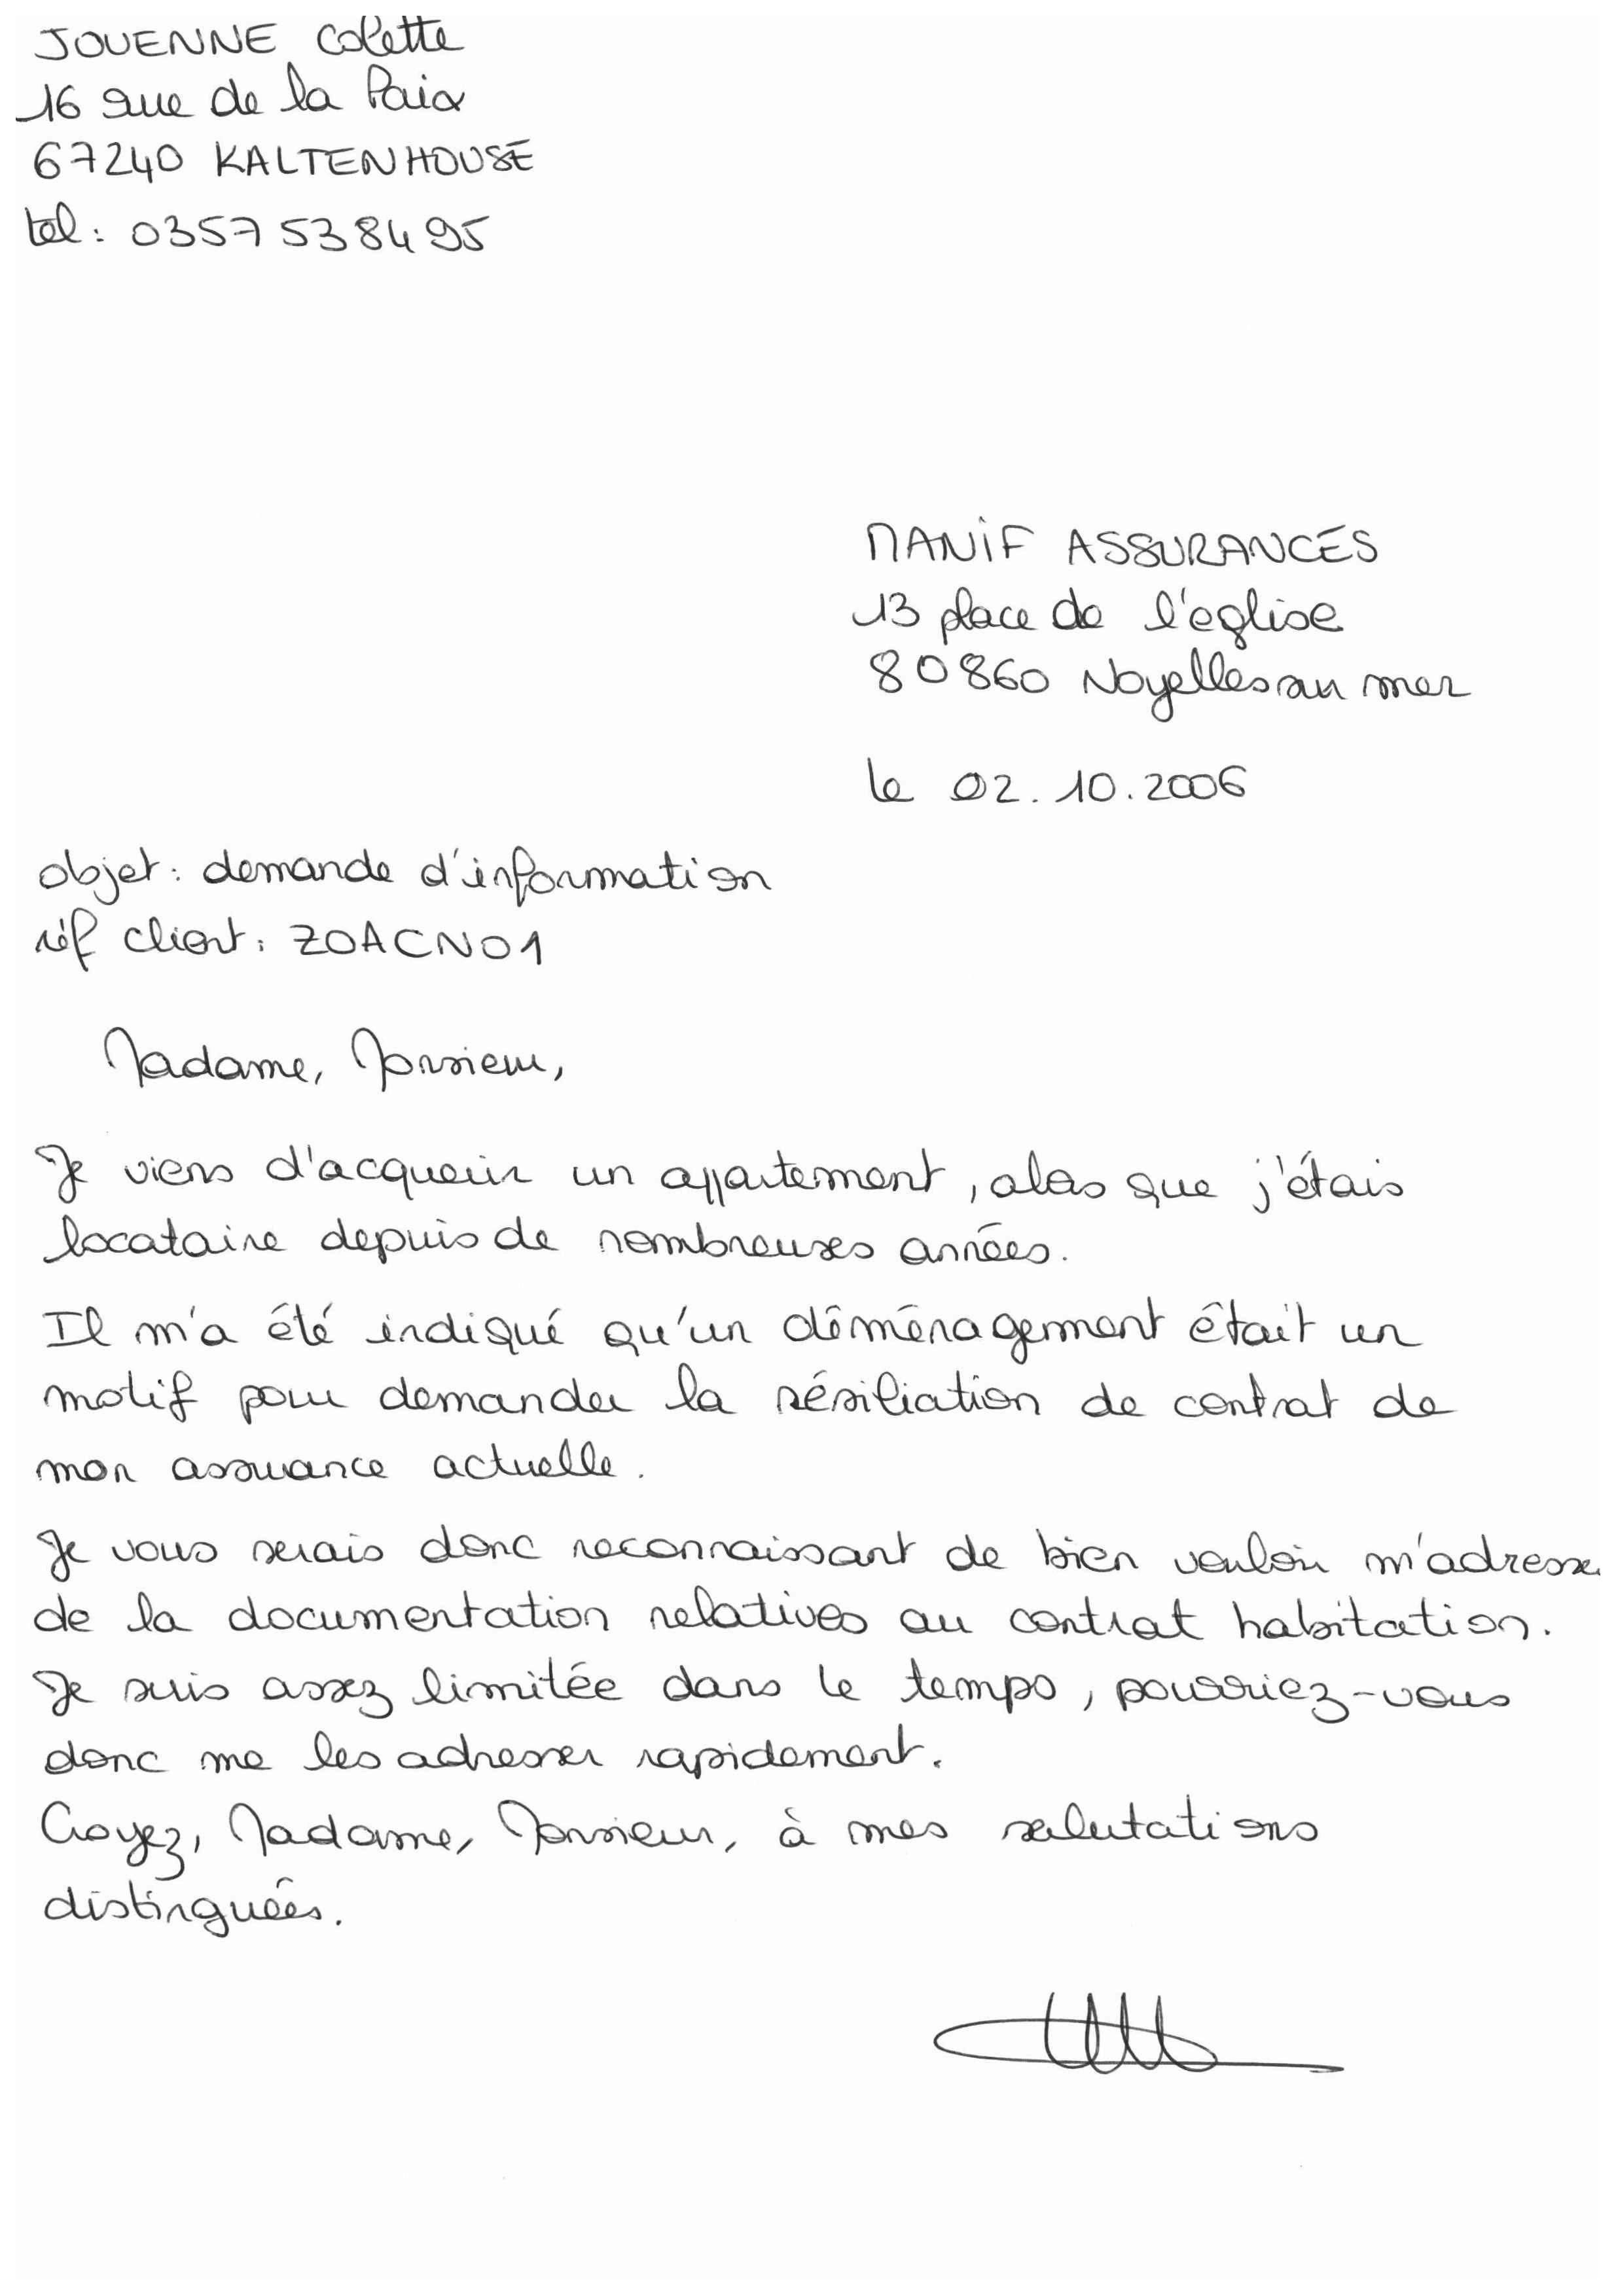 JOUENNE Colette
16 rue de la Paix
67240 KALTENHOUSE
tel : 0357538495
MANIF ASSURANCES
13 place de l'eglise
80860 Noyelles au mer
le 02.10.2006
objet : demande d'information
réf client : ZOACN01
Madame, Monsieur,
Je viens d'acquerir un appartement, alors que j'étais
locataire depuis de nombreuses années.
Il m'a été indiqué qu'un déménagement était un
motif pour demander la résiliation de contrat de
mon assurance actuelle.
Je vous serais donc reconnaissant de bien vouloir m'adresser
de la documentation relatives au contrat habitation.
Je suis assez limitée dans le temps, pourriez-vous
donc me les adresser rapidement.
Croyez, Madame, Monsieur, à mes salutations
distinguées.